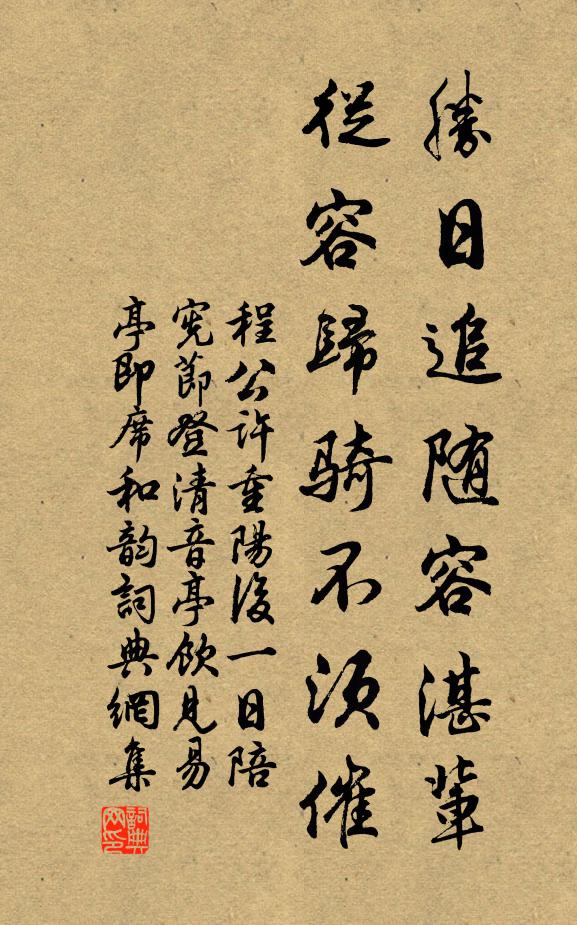 勝日追随容湛輩
從容歸騎不須催
程公許重陽後一日陪
憲節登清音亭飲見易
亭即席和韵詞典網集
詞典網印